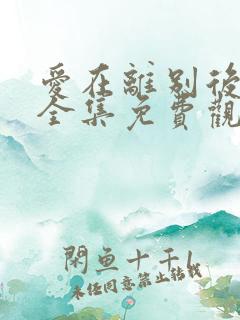 愛在離別後
全集免費觀
閑魚十千1
未经同意禁止转载